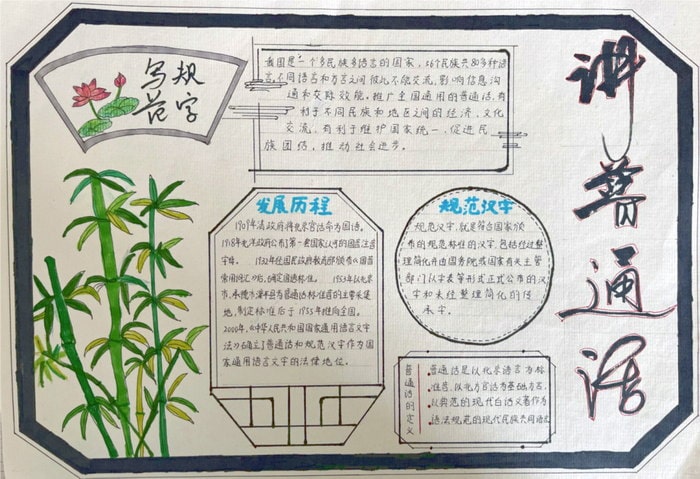 讲普通话
写规
范字
我国是一个多民族多语言的国家，56个民族共80多种语
言，不同语言和方言之间彼此不能交流，影响信息沟
通和交际效能。推广全国通用的普通话，有
利于不同民族和地区之间的经济、文化
交流，有利于维护国家统一，促进民
族团结，推动社会进步。
发展历程
1909年清政府将北京官话命为国语。
1918年北洋政府公布了第一套国家认可的国音注音
字母。 1932年经国民政府教育部颁布《国音
常用词汇》后，确定国语标准。 1953年以北京
市、承德市滦平县为普通话标准音的主要采集
地，制定标准后于1955年推向全国。
2000年，《中华人民共和国国家通用语言文字
法》确立了普通话和规范汉字作为国
家通用语言文字的法律地位。
规范汉字
规范汉字，就是符合国家颁
布的规范标准的汉字，包括经过整
理简化并由国务院或国家有关主管
部门以字表等形式正式公布的汉
字和未经整理简化的传
承字。
普通话的定义
普通话是以北京语言为标
准音，以北方官话为基础方言，
以典范的现代白话文著作为
语法规范的现代民族共同语言